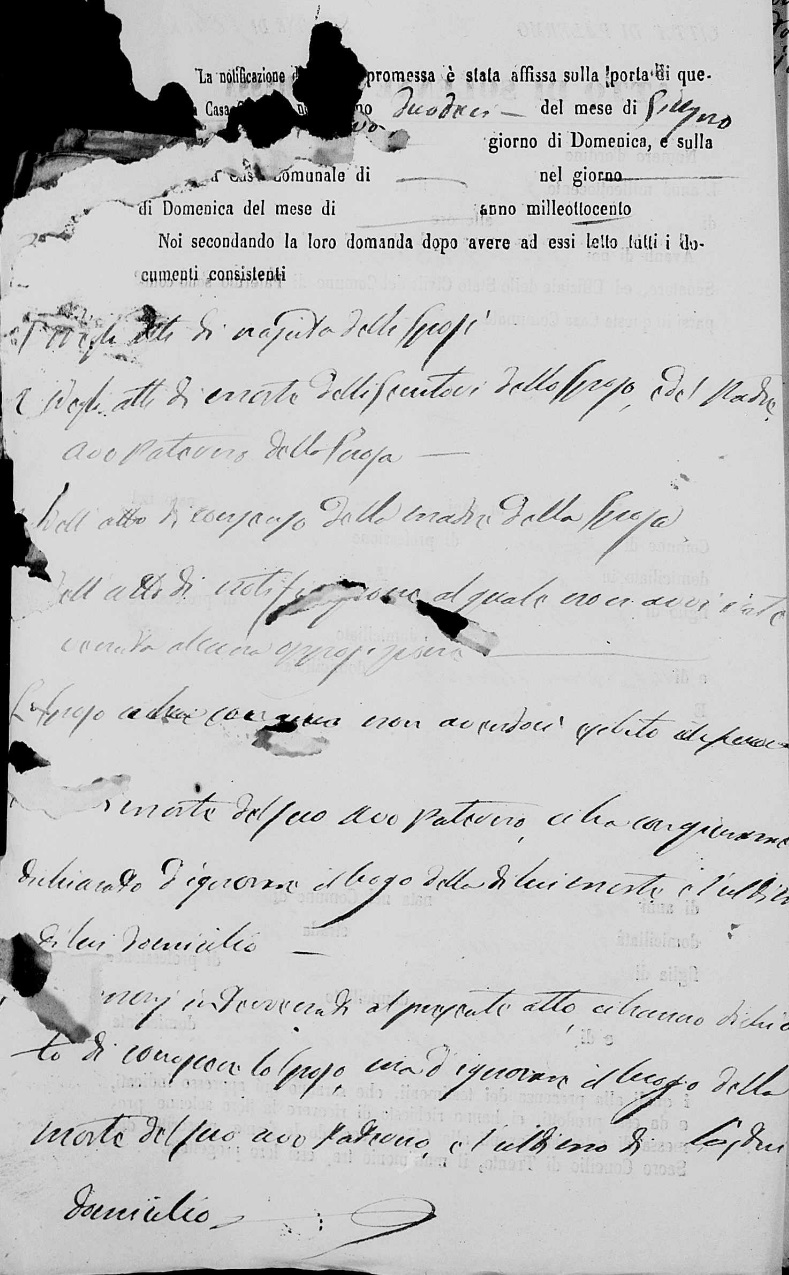 La notificazione promessa è stata affissa sulla porta di que-
Casa duodeci — del mese di Giugno
giorno di Domenica, e sulla
Casa Comunale di — nel giorno
di Domenica del mese di anno milleottocento
Noi secondando la loro domanda dopo avere ad essi letto tutti i do-
cumenti consistenti
negli atti di nascita delli Sposi
2 Negli atti di morte delli Genitori dello Sposo, e del Padre,
avo Paterno della Sposa —
Dell'atto di consenso della madre della Sposa
Dell'atto di notificazione al quale non avvi stata
alcuna opposizione —
Lo Sposo non avendoci esibito
morte del suo avo Paterno, ci ha con giuramento
dichiarato d'ignorare il luogo della di lui morte e l'ultimo
di lui domicilio —
al presente atto, ci hanno dichia
to di conoscere lo Sposo, ma d'ignorare il luogo della
morte del suo avo Paterno, e l'ultimo di
domicilio